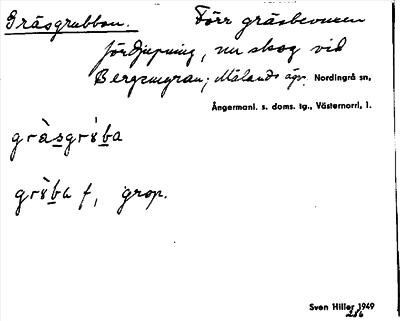 Gräsgrubban. Förr gräsbevuxen
fördjupning, nu skog vid
Bergsmgran; Mälands ägr. Nordingrå sn,
Ångermanl. s. doms. tg., Västernorrl. l.
gràsgròba
gròba f, grop.
Sven Hiller 1949
286